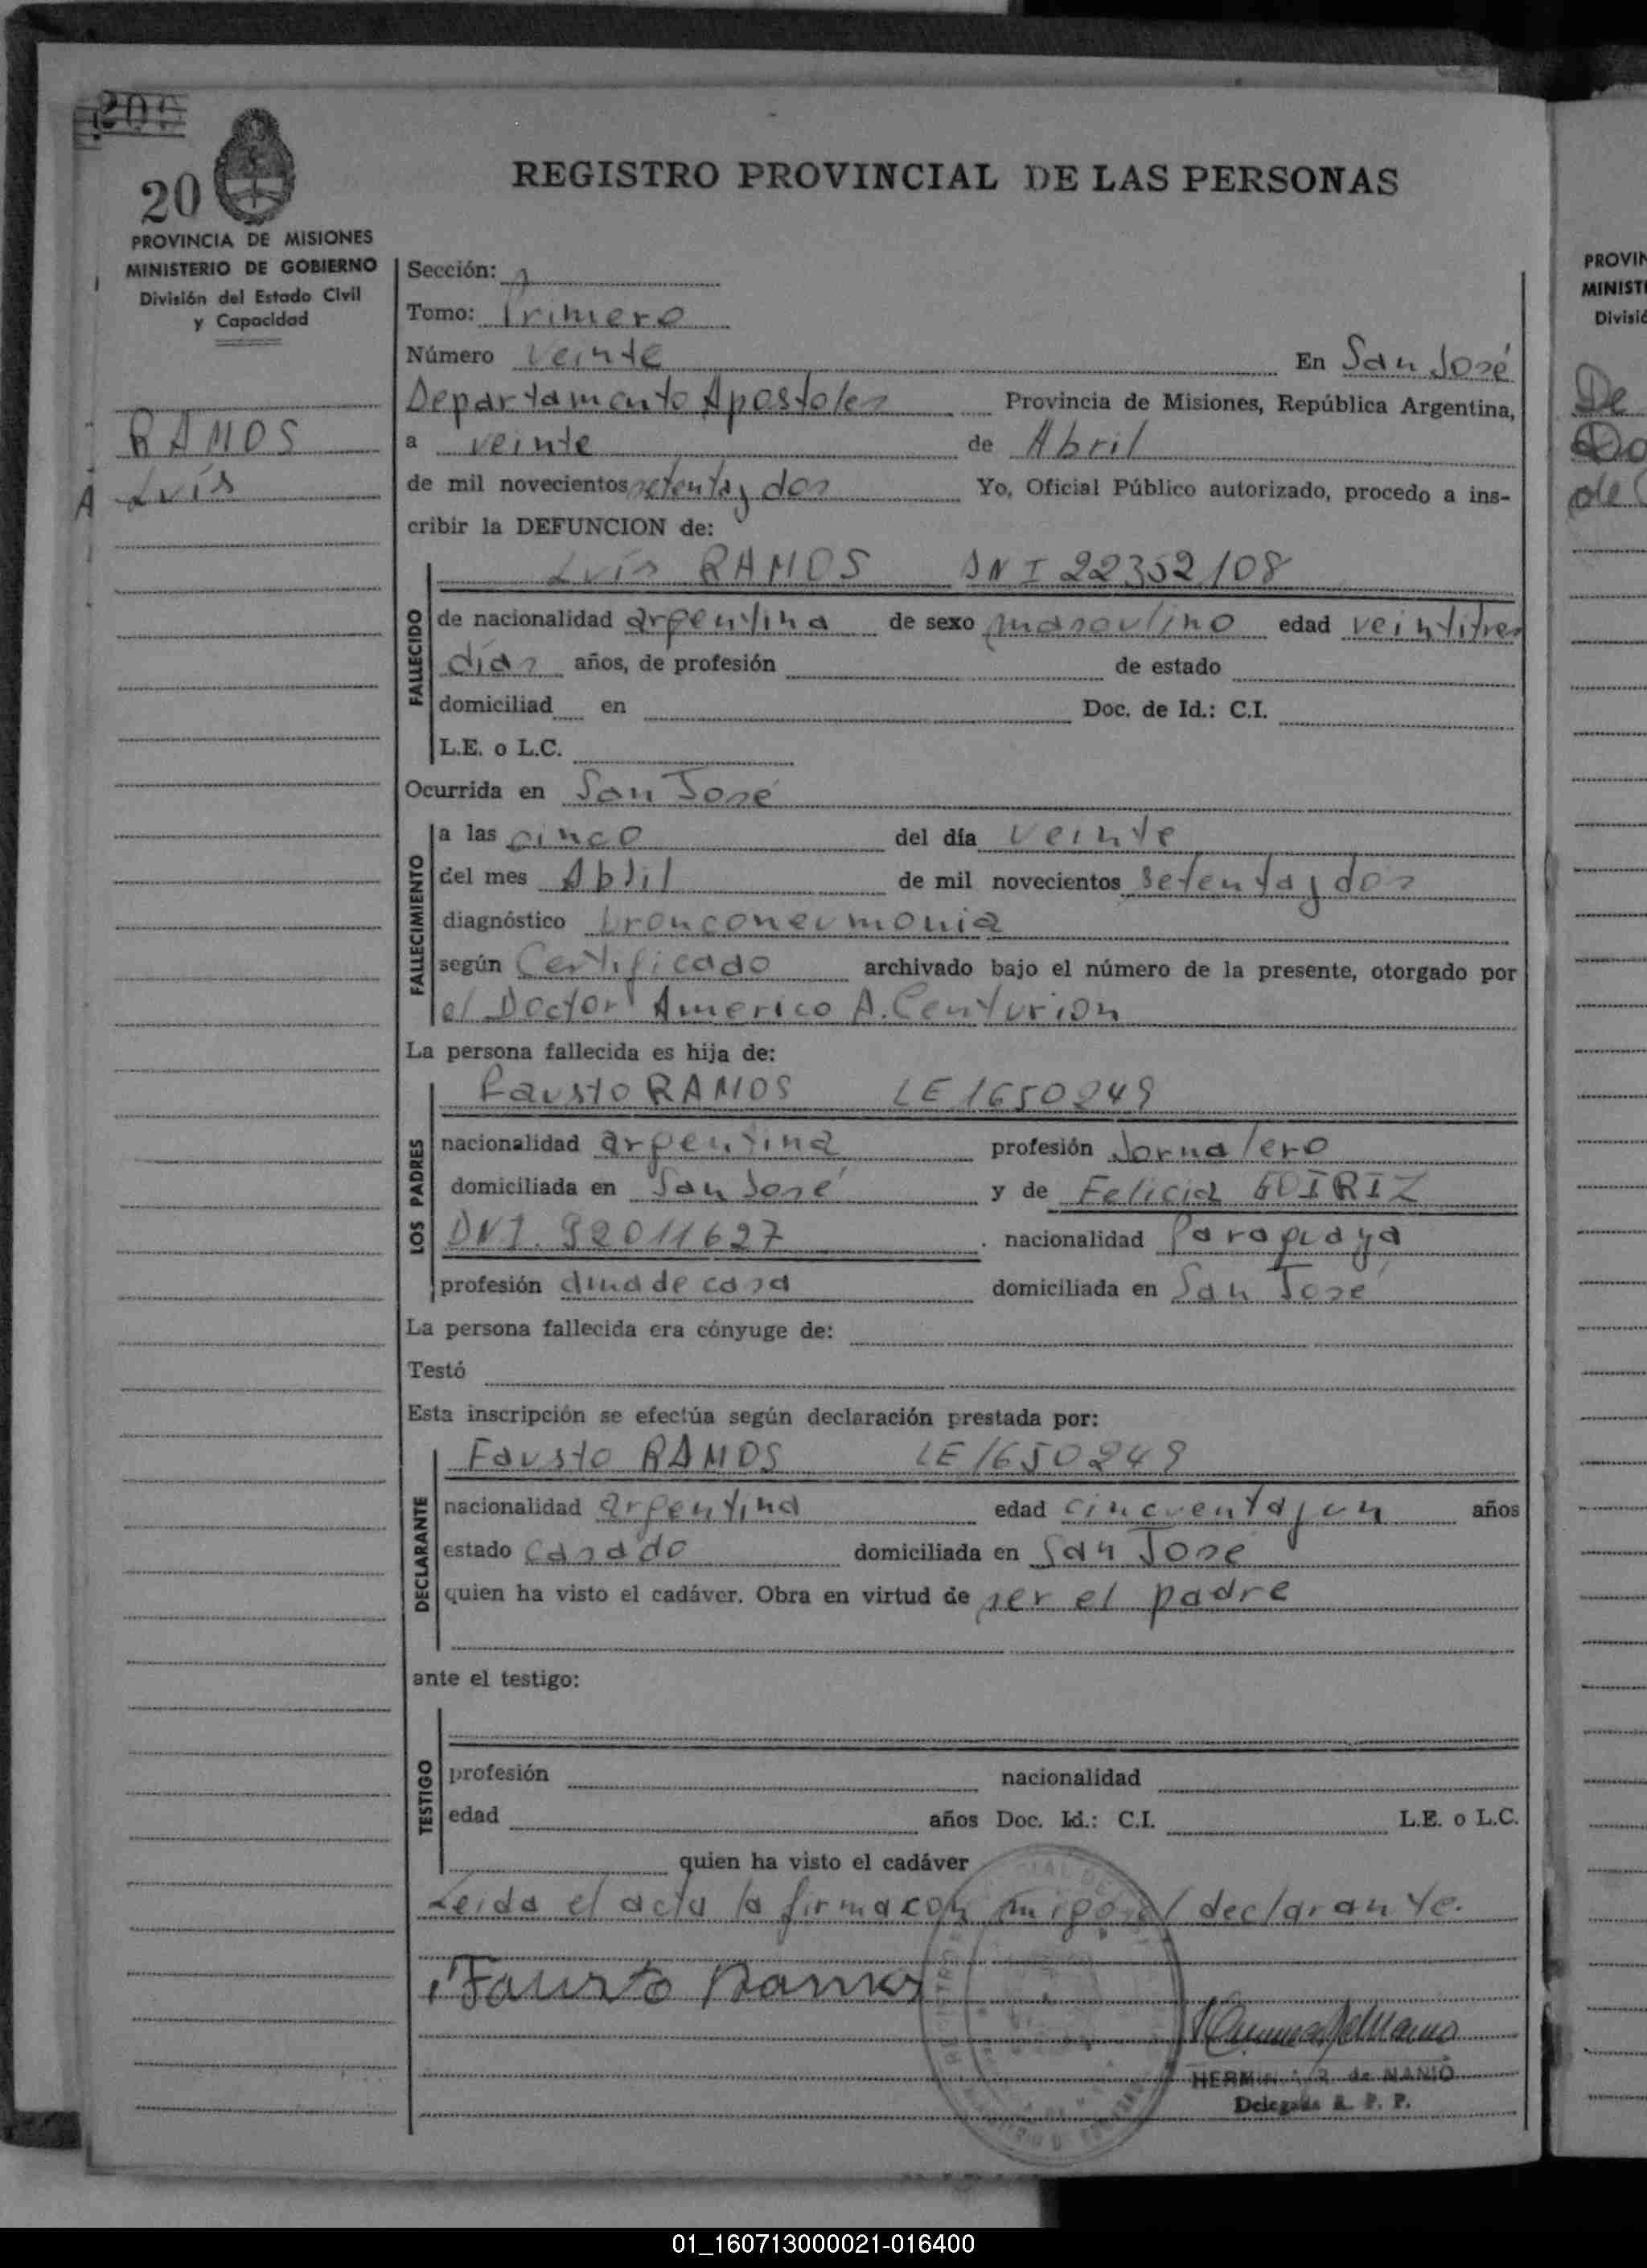 200
20
REGISTRO PROVINCIAL DE LAS PERSONAS
PROVINCIA DE MISIONES
MINISTERIO DE GOBIERNO
División del Estado Civil
y Capacidad
RAMOS
Luis
A
Sección: 1
Tomo: Primero
Número veinte En San José
Departamento Apostoles Provincia de Misiones, República Argentina,
a veinte de Abril
de mil novecientos setenta y dos Yo, Oficial Público autorizado, procedo a ins-
cribir la DEFUNCION de:
Luis RAMOS DNI 22352108
FALLECIDO
de nacionalidad argentina de sexo masculino edad veintitres
dias años, de profesión de estado
domiciliad en Doc. de Id.: C.I.
L.E. o L.C.
Ocurrida en San José
FALLECIMIENTO
a las cinco del día veinte
del mes Abril de mil novecientos setenta y dos
diagnóstico bronconeumonia
según Certificado archivado bajo el número de la presente, otorgado por
el Doctor Americo A. Centurion
La persona fallecida es hija de:
LOS PADRES
Fausto RAMOS LE 1650249
nacionalidad argentina profesión Jornalero
domiciliada en San José y de Felicia GOIRIZ
DNI. 92011627 nacionalidad Paraguaya
profesión ama de casa domiciliada en San José
La persona fallecida era cónyuge de:
Testó
Esta inscripción se efectúa según declaración prestada por:
DECLARANTE
Fausto RAMOS LE 1650249
nacionalidad argentina edad cincuenta y un años
estado casado domiciliada en San José
quien ha visto el cadáver. Obra en virtud de ser el padre
ante el testigo:
TESTIGO
profesión nacionalidad
edad años Doc. Id.: C.I. L.E. o L.C.
quien ha visto el cadáver
Leida el acta la firma con migo el declarante.
Fausto Ramos
de NANIO
Delegada R. P. P.
PROVIN
MINIST
Divisió
De
Do
de
01_160713000021-016400